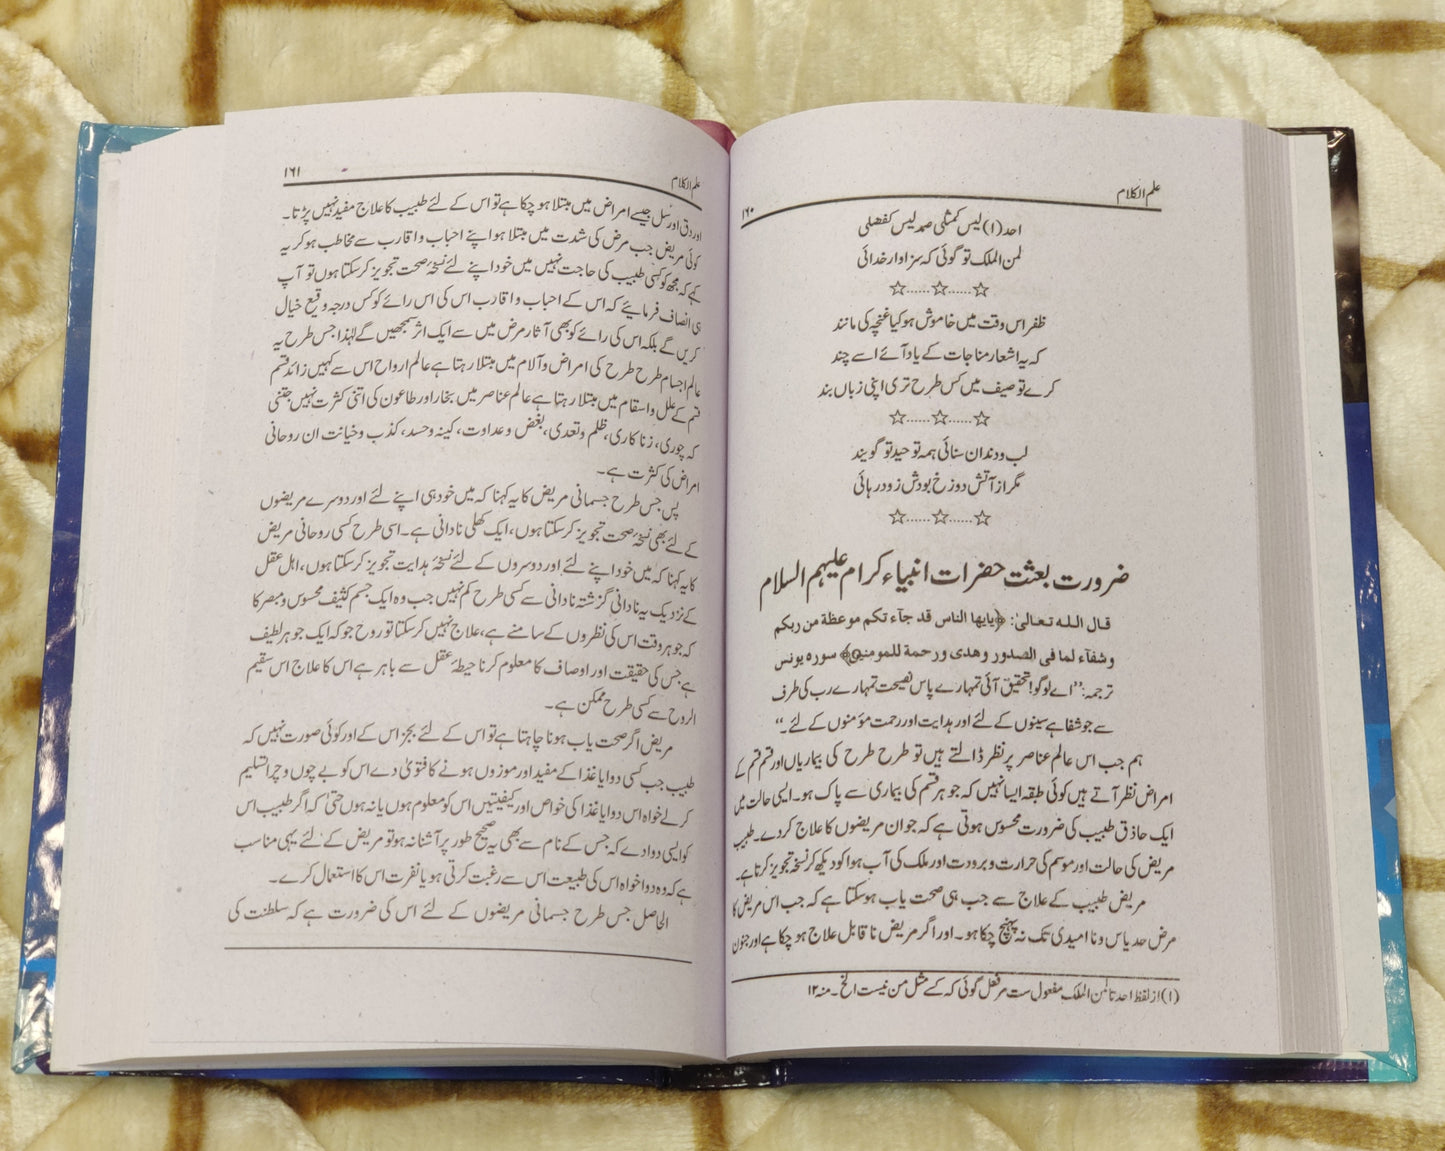 علم الکلام
۱۶۰
احد (۱) لیس کمثلی صمد لیس کفضلی
لمن الملک تو گوئی کہ سزاوار خدائی
☆......☆......☆
ظفر اس وقت میں خاموش ہو کیا غنچہ کی مانند
کہ یہ اشعار مناجات کے یاد آئے اسے چند
کرے توصیف میں کس طرح تری اپنی زباں بند
☆......☆......☆
لب و دندان سنائی ہمہ توحید تو گویند
مگر از آتش دوزخ بودش زود رہائی
☆......☆......☆
ضرورت بعثت حضرات انبیاء کرام علیہم السلام
قال اللہ تعالیٰ: ﴿یایھا الناس قد جآء تکم موعظة من ربکم
وشفآء لما فی الصدور وھدی ورحمة للمومنین﴾ سورہ یونس
ترجمہ: ’’اے لوگو! تحقیق آئی تمہارے پاس نصیحت تمہارے رب کی طرف
سے جو شفا ہے سینوں کے لئے اور ہدایت اور رحمت مؤمنوں کے لئے۔‘‘
ہم جب اس عالم عناصر پر نظر ڈالتے ہیں تو طرح طرح کی بیماریاں اور قسم قسم کے
امراض نظر آتے ہیں کوئی طبقہ ایسا نہیں کہ جو ہر قسم کی بیماری سے پاک ہو۔ ایسی حالت میں
ایک حاذق طبیب کی ضرورت محسوس ہوتی ہے کہ جو ان مریضوں کا علاج کر دے۔ طبیب
مریض کی حالت اور موسم کی حرارت و برودت اور ملک کی آب ہوا کو دیکھ کر نسخہ تجویز کرتا ہے۔
مریض طبیب کے علاج سے جب ہی صحت یاب ہو سکتا ہے کہ جب اس مریض کا
مرض حد یاس و نا امیدی تک نہ پہنچ چکا ہو۔ اور اگر مریض نا قابل علاج ہو چکا ہے اور جنون
(۱) از لفظ احد تا لمن الملک مفعول ست مر فعل گوئی کہ کے مثل من نیست الخ۔ منہ ۱۲
علم الکلام
۱۶۱
اور دق اور سل جیسے امراض میں مبتلا ہو چکا ہے تو اس کے لئے طبیب کا علاج مفید نہیں پڑتا۔
کوئی مریض جب مرض کی شدت میں مبتلا ہو اپنے احباب و اقارب سے مخاطب ہو کر یہ
کہے کہ مجھ کو کسی طبیب کی حاجت نہیں میں خود اپنے لئے نسخۂ صحت تجویز کر سکتا ہوں تو آپ
ہی انصاف فرمائیے کہ اس کے احباب و اقارب اس کی اس رائے کو کس درجہ وقیع خیال
کریں گے بلکہ اس کی رائے کو بھی آثار مرض میں سے ایک اثر سمجھیں گے لہٰذا جس طرح یہ
عالم اجسام طرح طرح کی امراض و آلام میں مبتلا رہتا ہے عالم ارواح اس سے کہیں زائد قسم
قسم کے علل و اسقام میں مبتلا رہتا ہے عالم عناصر میں بخار اور طاعون کی اتنی کثرت نہیں جتنی
کہ چوری، زنا کاری، ظلم و تعدی، بغض و عداوت، کینہ و حسد، کذب و خیانت ان روحانی
امراض کی کثرت ہے۔
پس جس طرح جسمانی مریض کا یہ کہنا کہ میں خود ہی اپنے لئے اور دوسرے مریضوں
کے لئے بھی نسخۂ صحت تجویز کر سکتا ہوں، ایک کھلی نادانی ہے۔ اسی طرح کسی روحانی مریض
کا یہ کہنا کہ میں خود اپنے لئے اور دوسروں کے لئے نسخۂ ہدایت تجویز کر سکتا ہوں، اہل عقل
کے نزدیک یہ نادانی گزشتہ نادانی سے کسی طرح کم نہیں جب وہ ایک جسم کثیف محسوس و مبصر کا
کہ جو ہر وقت اس کی نظروں کے سامنے ہے، علاج نہیں کر سکتا تو روح جو کہ ایک جوہر لطیف
ہے جس کی حقیقت اور اوصاف کا معلوم کرنا حیطۂ عقل سے باہر ہے اس کا علاج اس سقیم
الروح سے کسی طرح ممکن ہے۔
مریض اگر صحت یاب ہونا چاہتا ہے تو اس کے لئے بجز اس کے اور کوئی صورت نہیں کہ
طبیب جب کسی دوا یا غذا کے مفید اور موزوں ہونے کا فتویٰ دے اس کو بے چوں و چرا تسلیم
کر لے خواہ اس دوا یا غذا کی خواص اور کیفیتیں اس کو معلوم ہوں یا نہ ہوں حتیٰ کہ اگر طبیب اس
کو ایسی دوا دے کہ جس کے نام سے بھی یہ صحیح طور پر آشنا نہ ہو تو مریض کے لئے یہی مناسب
ہے کہ وہ دوا خواہ اس کی طبیعت اس سے رغبت کرتی ہو یا نفرت اس کا استعمال کرے۔
الحاصل جس طرح جسمانی مریضوں کے لئے اس کی ضرورت ہے کہ سلطنت کی